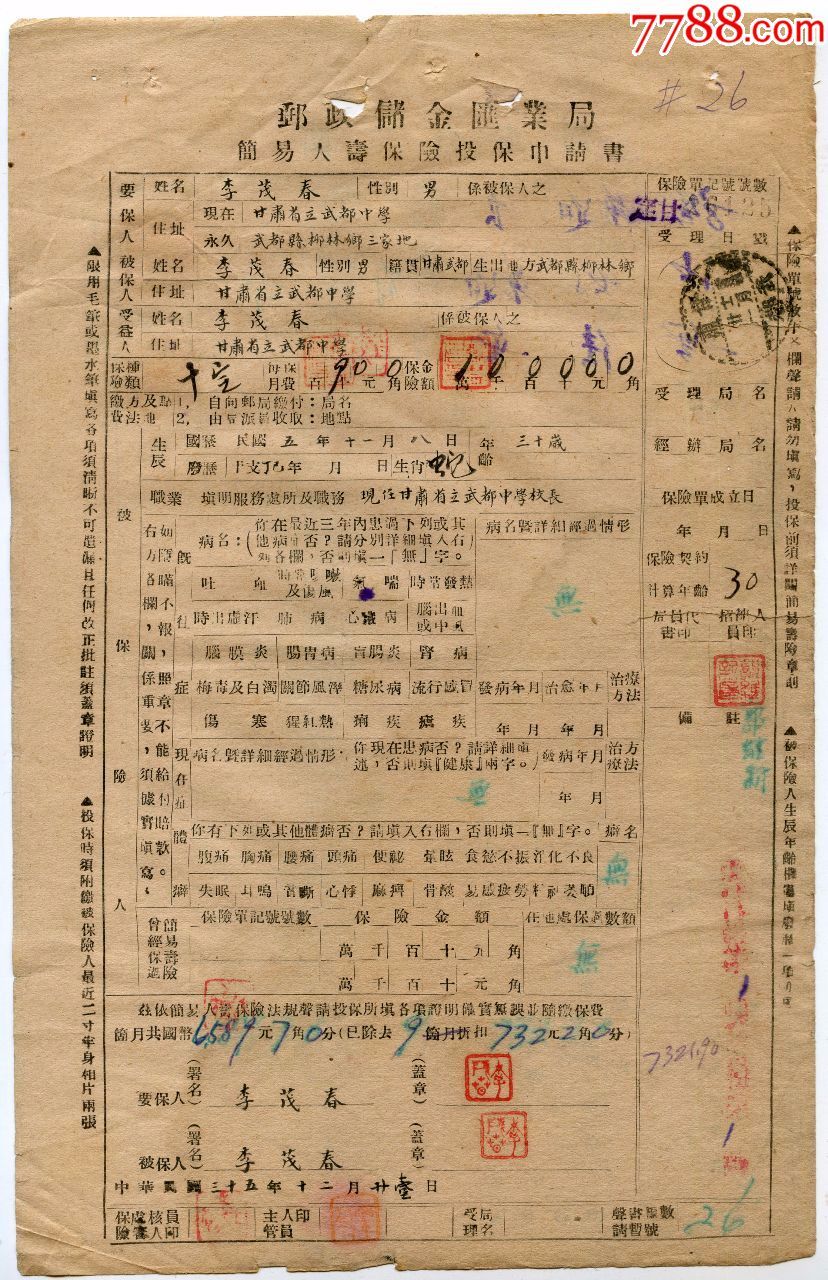 7788.com
#26
郵政儲金匯業局
簡易人壽保險投保申請書
要保人 姓名 李茂春 性別 男 係被保人之
住址 現在 甘肅省立武都中學
永久 武都縣柳林鄉三家地
被保人 姓名 李茂春 性別 男 籍貫 甘肅武都 生出地方 武都縣柳林鄉
住址 甘肅省立武都中學
受益人 姓名 李茂春 係被保人之
住址 甘肅省立武都中學
保險種類 每月保費 百十元角 900 保險金額 萬千百十元角 100000
繳費方法及地點 1, 自向郵局繳付:局名
2, 由局派員收取:地點
被保險人
生辰 國曆 民國五年十一月八日 年齡 三十歲
廢曆 干支丁巳年 月 日 生肖 蛇
職業 填明服務處所及職務 現任甘肅省立武都中學校長
如隱瞞不報,照章不能給付賠款。
右方各欄,關係重要,須據實填寫,
既往症
病名:(你在最近三年內患過下列或其他病症否?請分別詳細填入右列各欄,否則填一『無』字。
病名暨詳細經過情形
無
吐血 時常咳嗽及傷風 氣喘 時常發熱
時出虛汗 肺病 心臟病 腦出血或中風
腦膜炎 腸胃病 盲腸炎 腎病
梅毒及白濁 關節風溼 糖尿病 流行感冒 發病年月 治愈年月 治療方法
傷寒 猩紅熱 痢疾 瘧疾 年月 年月
現在症
病名暨詳細經過情形:你現在患病否?請詳細填述,否則填『健康』兩字。 發病年月 治療方法
無 年月
體癖
你有下列或其他體癖否?請填入右欄,否則填一『無』字。 癖名
腹痛 胸痛 腰痛 頭痛 便祕 暈眩 食慾不振 消化不良 無
失眠 耳鳴 心悸 麻痺 骨酸 易感疲勞
曾經保過簡易壽險 保險單記號號數 保險金額 在他處保過數額
萬千百十元角 無
萬千百十元角
茲依簡易人壽保險法規聲請投保所填各項證明確實無誤並隨繳保費
箇月共國幣6589元7角0分(已除去9箇月折扣732元2角0分)
要保人 (署名) 李茂春 (蓋章)
被保人 (署名) 李茂春 (蓋章)
中華民國三十五年十二月廿壹日
主管人員印 受理局名 聲請書暫號數 26
保險單記號號數
受理日戳
受理局名
經辦局名
保險單成立日
年月日
保險契約計算年齡 30
備註
7321.90
1
1
▲限用毛筆或墨水筆填寫各項須清晰不可遺漏且任何改正批註須蓋章證明
▲投保時須附繳被保險人最近二寸半身相片兩張